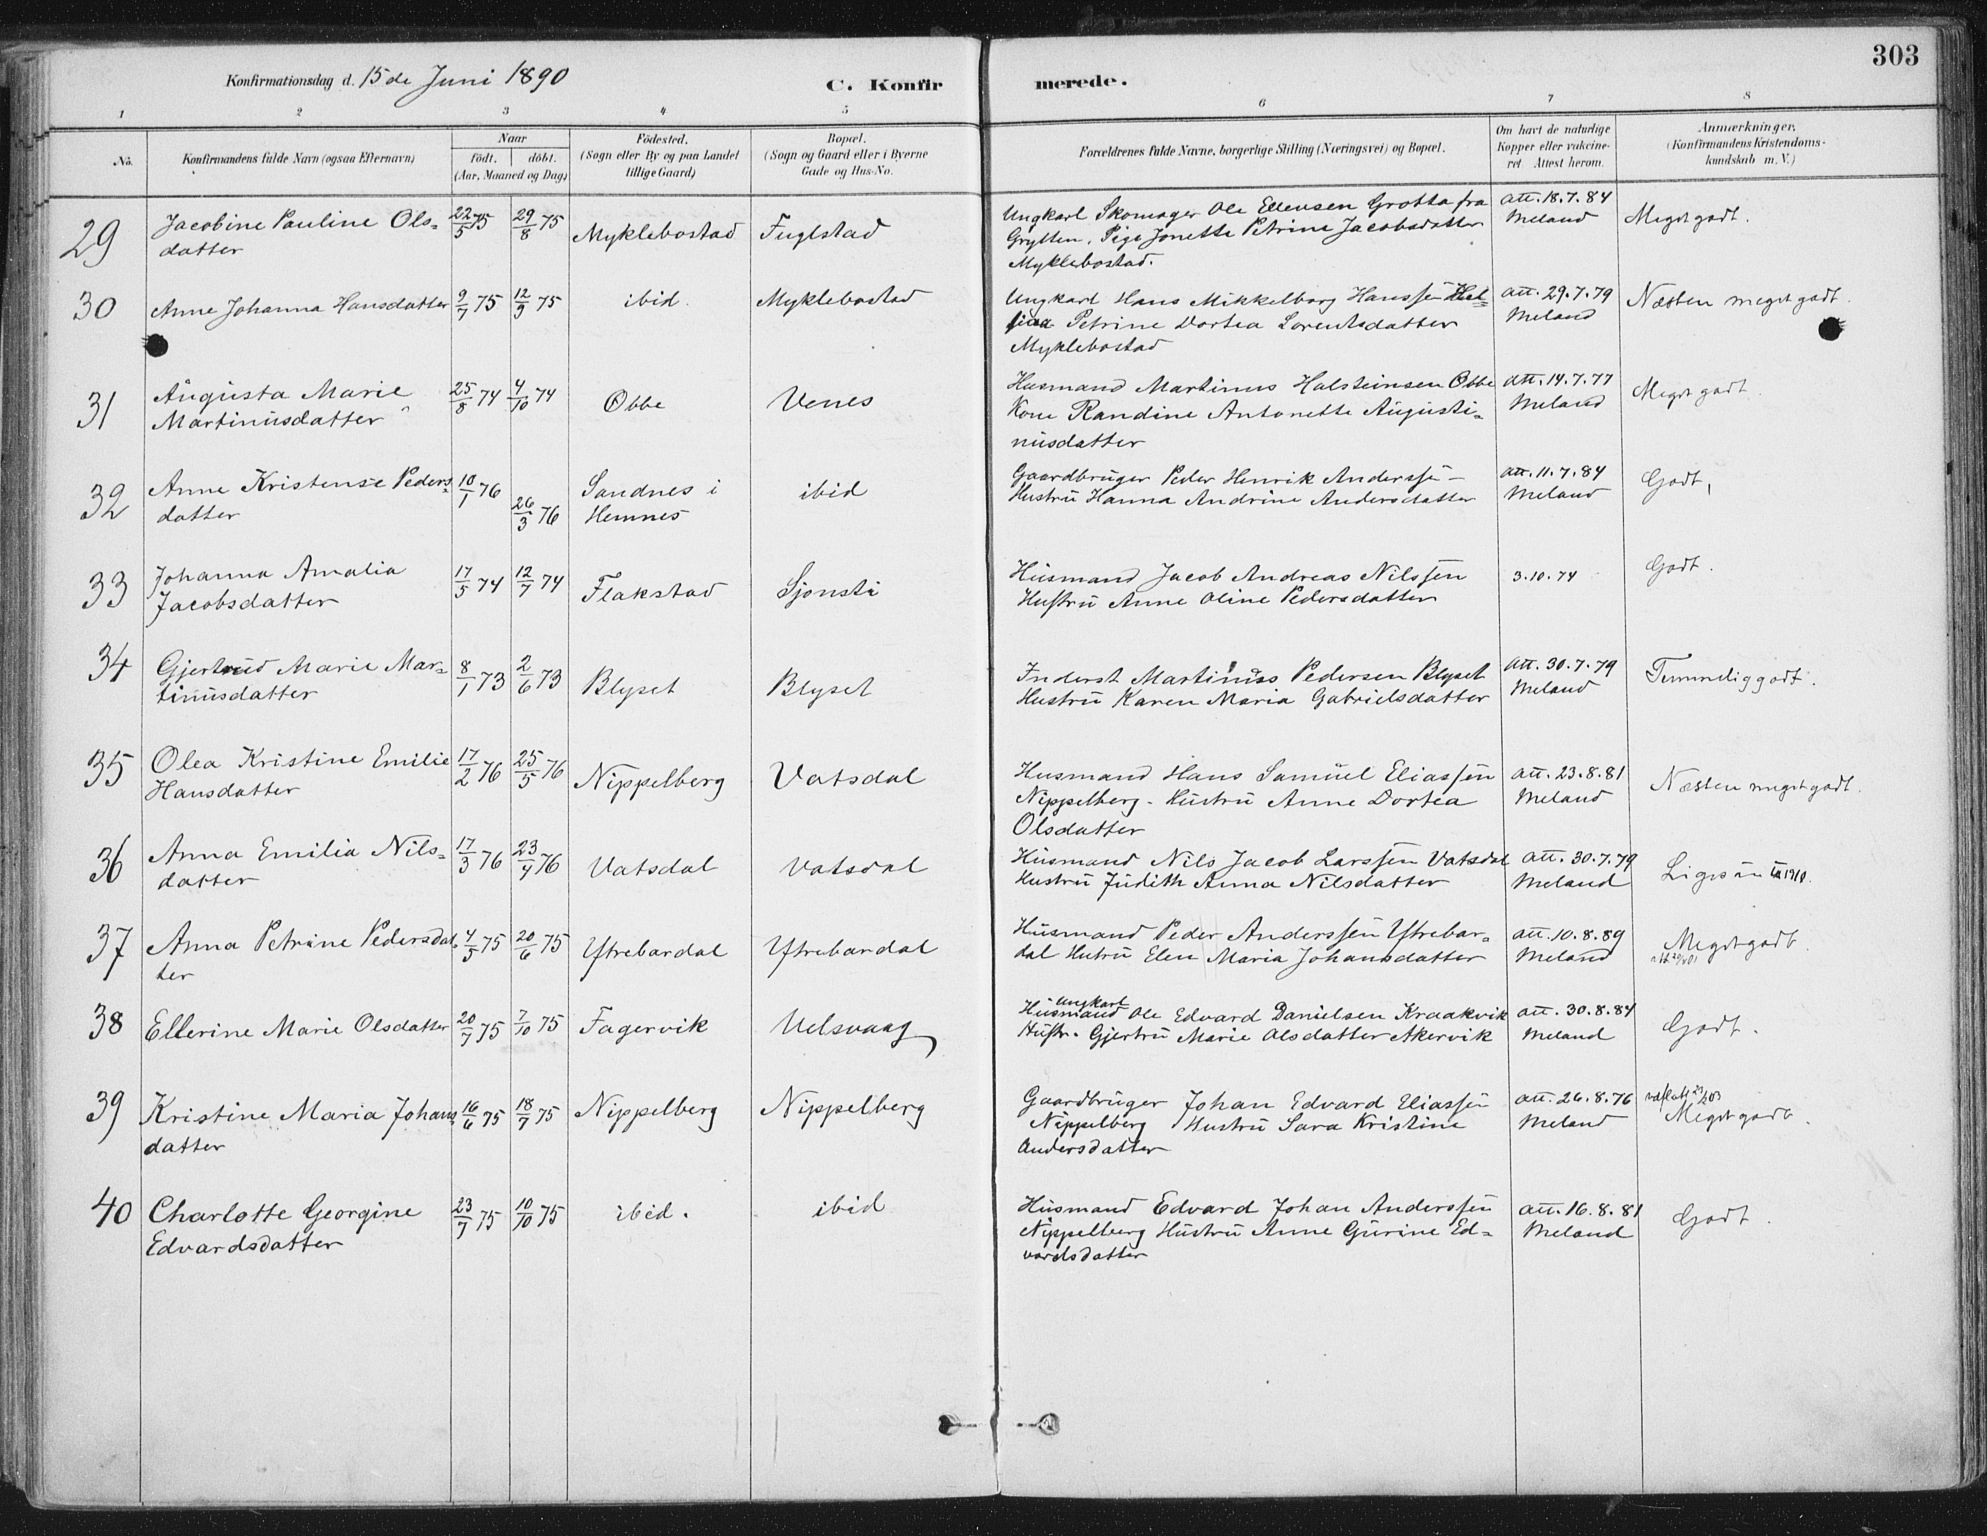 303
Konfirmationsdag d. 15de Juni 1890
C. Konfirmerede.
1 2 3 4 5 6 7 8
No.
Konfirmandens fulde Navn (ogsaa Efternavn)
Naar
födt. döbt.
(Aar, Maaned og Dag)
Födested.
(Sogn eller By og paa Landet
tillige Gaard)
Bopæl.
(Sogn og Gaard eller i Byerne
Gade og Hus-No.
Forældrenes fulde Navne, borgerlige Stilling (Næringsvei) og Bopæl.
Om havt de naturlige
Kopper eller vakcine-
ret. Attest herom.
Anmærkninger.
(Konfirmandens Kristendoms-
kundskab m. V.)
29 Jacobine Pauline Ols- 22/5 75 29/8 75 Myklebostad Fuglstad
datter
Ungkarl Skomager Ole Ellensen Grotta fra att. 18.7.84
Grytten. Pige Jonette Petrine Jacobsdatter Meland Meget godt.
Myklebostad.
30 Anne Johanna Hansdatter 9/7 75 12/9 75 ibid. Myklebostad
Ungkarl Hans Mikkelborg Hanssen att. 29.7.79 Næsten meget godt.
Petrine Dortea Lorentsdatter Meland
Myklebostad
31 Augusta Marie 25/8 74 4/10 74 Obbe Venes
Martinusdatter
Husmand Martinus Halsteinsen Obbe att. 14.7.77 Meget godt.
Kone Randine Antonette Augusti- Meland
nusdatter
32 Anne Kristense Peders- 10/1 76 26/3 76 Sandnes i ibid
datter Hemnes
Gaardbruger Peder Henrik Anderssen att. 11.7.84 Godt,
Hustru Hanna Andrine Andersdatter Meland
33 Johanna Amalia 17/5 74 12/7 74 Flakstad Sjonsti
Jacobsdatter
Husmand Jacob Andreas Nilssen 3.10.74 Godt.
Hustru Anne Oline Pedersdatter
34 Gjertrud Marie Mar- 8/1 73 2/6 73 Blyset Blyset
tinusdatter
Inderst Martinus Pedersen Blyset att. 30.7.79 Temmelig godt.
Hustru Karen Maria Gabrielsdatter Meland
35 Olea Kristine Emilie 17/2 76 25/5 76 Nippelberg Vatsdal
Hansdatter
Husmand Hans Samuel Eliassen att. 23.8.81 Næsten meget godt.
Nippelberg. Hustru Anne Dortea Meland
Olsdatter
36 Anna Emilia Nils- 17/3 76 23/4 76 Vatsdal Vatsdal
datter
Husmand Nils Jacob Larssen Vatsdal att. 30.7.79
Hustru Judith Anna Nilsdatter Meland Ligesaa 1910.
37 Anna Petrine Pedersdat- 4/5 75 20/6 75 Ytrebardal Ytrebardal
ter
Husmand Peder Anderssen Ytrebar- att. 10.8.89 Meget godt.
dal Hutru Elen Maria Johansdatter Meland
38 Ellerine Marie Olsdatter 20/7 75 7/10 75 Fagervik Uelsvaag
Ungkarl
Husmand Ole Edvard Danielsen Kraakvik att. 30.8.84 Godt.
Hustr. Gjertru Marie Olsdatter Akervik Meland
39 Kristine Maria Johans- 16/6 75 18/7 75 Nippelberg Nippelberg
datter
Gaardbruger Johan Edvard Eliassen att. 26.8.76
Nippelberg Hustru Sara Kristine Meland Meget godt.
Andersdatter
40 Charlotte Georgine 23/7 75 10/10 75 ibid. ibid
Edvardsdatter
Husmand Edvard Johan Anderssen att. 16.8.81 Godt.
Nippelberg Hustru Anne Gurine Ed- Meland
vardsdatter